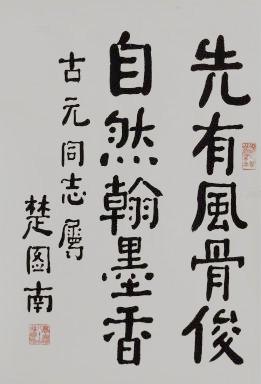 先有風骨俊
自然翰墨香
古元同志属
楚图南